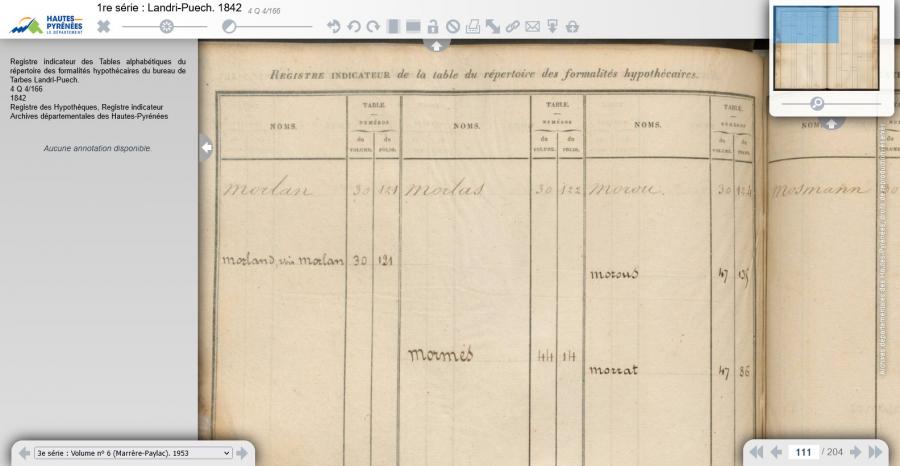 1re série : Landri-Puech. 1842 4 Q 4/166
HAUTES-
PYRÉNÉES
LE DÉPARTEMENT
Registre indicateur des Tables alphabétiques du
répertoire des formalités hypothécaires du bureau de
Tarbes Landri-Puech.
4 Q 4/166
1842
Registre des Hypothèques, Registre indicateur
Archives départementales des Hautes-Pyrénées
Aucune annotation disponible.
REGISTRE INDICATEUR de la table du répertoire des formalités hypothécaires.
NOMS. TABLE. NUMÉROS du VOLUME. du FOLIO.
NOMS. TABLE. NUMÉROS du VOLUME. du FOLIO.
NOMS. TABLE. NUMÉROS du VOLUME. du
NOM
morlan 30 121 morlas 30 122 morou. 30 124 mosmann
morland, voir morlan 30 121
morous 47
mormés 44 14
morrat 47 86
3e série : Volume nº 6 (Marrère-Paylac). 1953
111 / 204